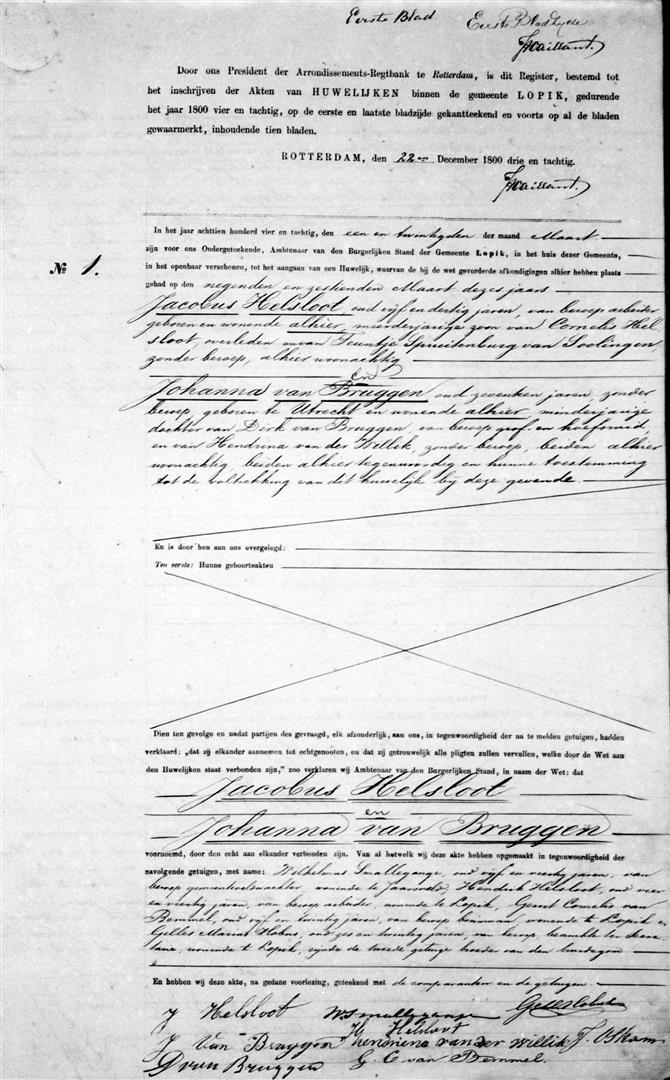 Eerste Blad Eerste Bladzijde
JVaillant.
Door ons President der Arrondissements-Regtbank te Rotterdam, is dit Register, bestemd tot
het inschrijven der Akten van HUWELIJKEN binnen de gemeente LOPIK, gedurende
het jaar 1800 vier en tachtig, op de eerste en laatste bladzijde gekantteekend en voorts op al de bladen
gewaarmerkt, inhoudende tien bladen.
ROTTERDAM, den 22en December 1800 drie en tachtig.
JVaillant.
In het jaar achttien honderd vier en tachtig, den een en twintigsten der maand Maart
zijn voor ons Ondergeteekende, Ambtenaar van den Burgerlijken Stand der Gemeente Lopik, in het huis dezer Gemeente,
No 1. in het openbaar verschenen, tot het aangaan van een Huwelijk, waarvan de bij de wet gevorderde afkondigingen alhier hebben plaats
gehad op den negenden en zestienden Maart dezes jaars
Jacobus Helsloot oud vijf en dertig jaren, van beroep arbeider
geboren en wonende alhier, meerderjarige zoon van Cornelis Hel
sloot, overleden en van Teuntje Spruitenburg van Soolingen,
zonder beroep, alhier woonachtig
en
Johanna van Bruggen oud zeventien jaren, zonder
beroep, geboren te Utrecht en wonende alhier, minderjarige
dochter van Dirk van Bruggen, van beroep grof en hoefsmid,
en van Hendrina van der Willik, zonder beroep, beiden alhier
woonachtig, beiden alhier tegenwoordig en hunne toestemming
tot de voltrekking van dit huwelijk bij deze gevende.
En is door hen aan ons overgelegd:
Ten eerste: Hunne geboorteakten
Dien ten gevolge en nadat partijen des gevraagd, elk afzonderlijk, aan ons, in tegenwoordigheid der na te melden getuigen, hadden
verklaard: „dat zij elkander aannemen tot echtgenooten, en dat zij getrouwelijk alle pligten zullen vervullen, welke door de Wet aan
den Huwelijken staat verbonden zijn,” zoo verklaren wij Ambtenaar van den Burgerlijken Stand, in naam der Wet: dat
Jacobus Helsloot
en
Johanna van Bruggen
voornoemd, door den echt aan elkander verbonden zijn. Van al hetwelk wij deze akte hebben opgemaakt in tegenwoordigheid der
navolgende getuigen, met name: Wilhelmus Smallegange, oud vijf en veertig jaren, van
beroep gemeenteontvanger, wonende te Jaarsveld, Hendrik Helsloot, oud vier
en veertig jaren, van beroep arbeider, wonende te Lopik, Gerrit Cornelis van
Bemmel, oud vijf en twintig jaren, van beroep bouwman, wonende te Lopik en
Gelles Marius oud zes en twintig jaren, van beroep beambte ter secre
tarie, wonende te Lopik, zijnde de tweede getuige broeder van den bruidegom
En hebben wij deze akte, na gedane voorlezing, geteekend met de comparanten en de getuigen
J Helsloot WSmallegange
J Van Bruggen H Helsloot hendriena van der willik
D van Bruggen G. C van Bemmel.